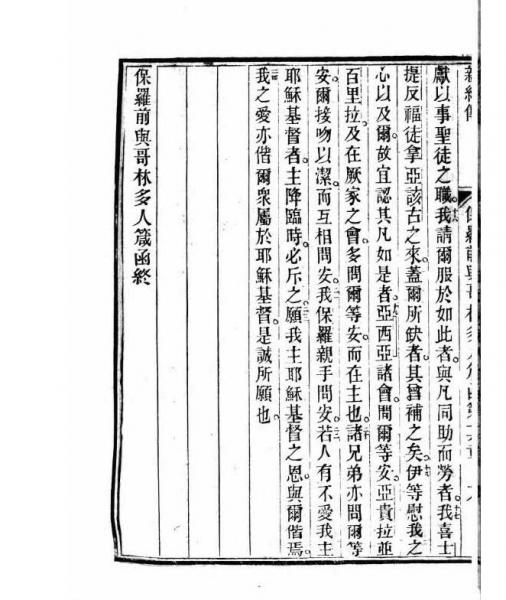 獻以事聖徒之職我請爾服於如此者與凡同助而勞者我喜士
提反福徒拿亞該古之來蓋爾所缺者其曾補之矣伊等慰我之
心以及爾故宜認其凡如是者亞西亞諸會問爾等安亞貴拉並
百里拉及在厥家之會多問爾等安而在主也諸兄弟亦問爾等
安爾接吻以潔而互相問安我保羅親手問安若人有不愛我主
耶穌基督者主降臨時必斥之願我主耶穌基督之恩與爾偕焉
我之愛亦偕爾眾屬於耶穌基督是誠所願也
保羅前與哥林多人箴函終